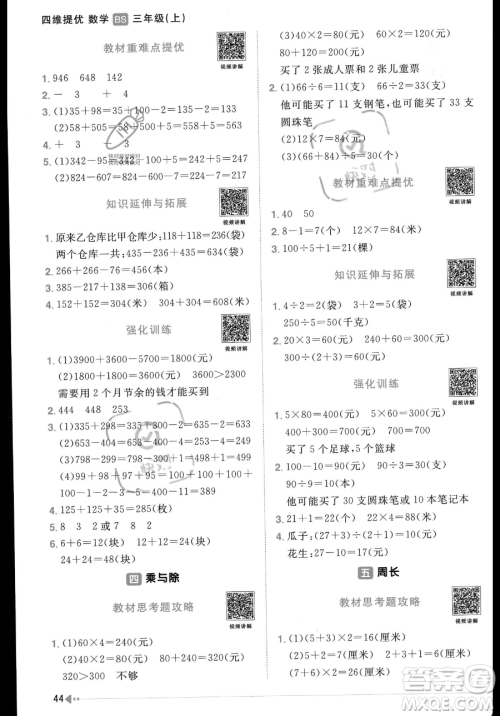 四维提优 数学 BS 三年级(上)
教材重难点提优
视频讲解
1. 946 648 3
2. － 3 － 4
3. (1)35+98=35+100－2=133
(2)544－98=544－100+2=446
4. + 3 + 4
5. (1)245－98=245－100+2=147
(2)824－597=824－600+3=227
知识延伸与拓展
视频讲解
1. 原来乙仓库比甲仓库少:118+118=236(袋)
两个仓库一共:435－236+435=634(袋)
2. 266+286－136=416(本)
3. 435－118+118=435(箱)
4. 152+152=304(米) 304+152=456(米)
强化训练
视频讲解
1. (1)3900+3600－5700=1800(元)
(2)1800+1800=3600(元) 3600>2800
需要用 2 个月节余的钱才能买到
2. 444 448 253
3. (1)335+298=335+300－2=633
(2)335－298=335－300+2=37
(3)798－299=798－300+1=499
(4)99+98+97+95=100+100+100+
100－1－2－3－5=389
4. 135+135+15=285(枚)
5. 8 3 2 7或8
6. 6+6=12(块) 12+12=24(块)
24+24=48(块)
四 乘与除
教材思考题攻略
视频讲解
1. (1)60×4=240(元)
(2)60×2=120(元) 100×2=200(元)
120+200=320(元)
320>300 不够
买了 2 张成人票和 2 张儿童票
2. (1)66÷6=11(支) 66÷2=33(支)
他可能买了 11 支钢笔，也可能买了 33 支
圆珠笔
(2)12×7=84(元)
(3)66+84÷5=30(元)
教材重难点提优
视频讲解
1. 40 50
2. 8－1=7(个) 7×5=35(米)
3. 51÷3+1=18(棵)
知识延伸与拓展
视频讲解
1. 4÷2=2(袋) 3+2=5(袋)
250÷5=50(千克)
2. 60÷3=20(元) 240+60=300(元)
300÷20=15(个)
强化训练
视频讲解
1. 5×80=400(元) 1100－400=700(元)
400+700=1100(元)
买了 5 个足球，5 个篮球
2. 100－10=90(元) 90÷3=30(支)
90÷9=10(本)
他可能买了 30 支圆珠笔或 10 本笔记本
3. 7－1=6(个) 6×4=24(米)
4. 21÷7=3(元) 大豆:3×12=36(元)
花生:27－10=17(元)
五 周长
教材思考题攻略
视频讲解
1. (1)(2+1)×2=6(厘米)
(2)(5+2)×2=14(厘米) 2+3+1=6(厘米)
(3)(7+6)×2=26(厘米)
44